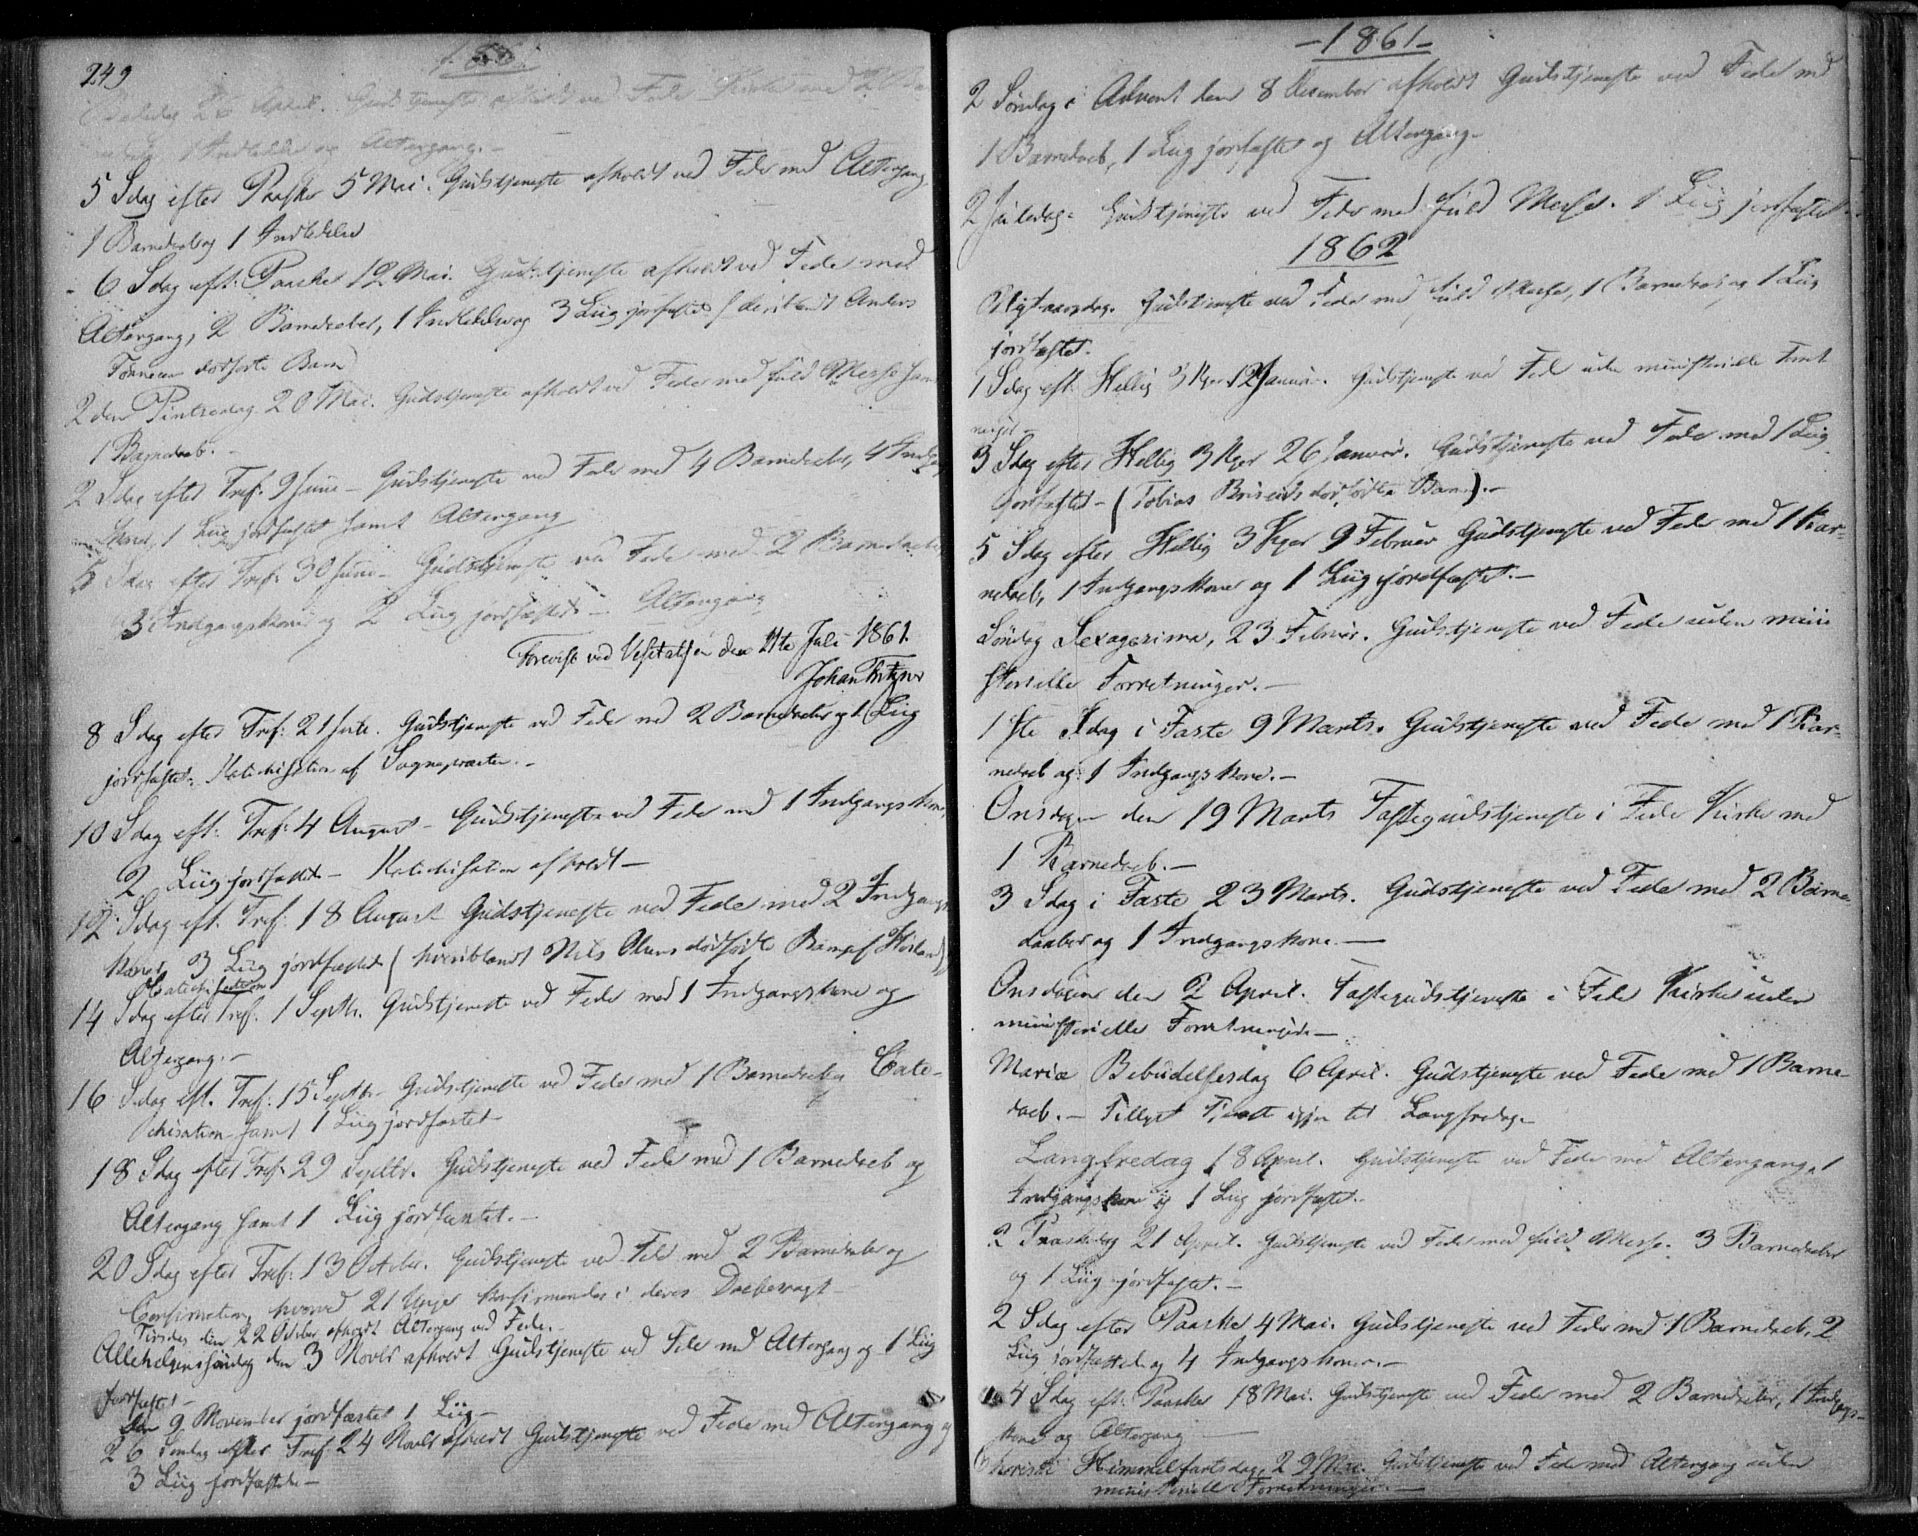 249
1861
26 April. Gudstjeneste afholdt ved Fede Kirke med 2
1 Indledelse og Altergang.-
5 Sdag efter Paaske 5 Mai. Gudstjeneste afholdt ved Fede med Altergang
1 Barnedaab og 1 Indledelse
6 Sdag eft. Paaske 12 Mai. Gudstjeneste afholdt ved Fede med
Altergang, 2 Barnedaaber, 1 Indledelse og 3 Liig jordfæstede (deriblandt Anders
dødfødte Barn)
2den Pintsedag 20 Mai. Gudstjeneste afholdt ved Fede med fuld Messe samt
1 Barnedaab.-
2 Sdag efter Tref. 9 Juni- Gudstjeneste ved Fede med 4 Barnedaaber, 4 Indgangs
koner, 1 Liig jordfæstet samt Altergang
5 Sdag efter Tref: 30 Juni- Gudstjeneste ved Fede med 2 Barnedaaber
3 Indgangskoner og 2 Liig jordfæstede- Altergang
Forevist ved Visitatsen den 11te Juli 1861.
Johan Fritzner
8 Sdag efter Tref: 21 Juli. Gudstjeneste ved Fede med 2 Barnedaaber og 1 Liig
jordfæstet. Katechisation af Sognepræsten.-
10 Sdag eft: Tref: 4 August- Gudstjeneste ved Fede med 1 Indgangskone,
2 Liig jordfæstet- Katechisation afholdt-
12 Sdag eft. Tref: 18 August Gudstjeneste ved Fede med 2 Indgangs
koner, 3 Liig jordfæstede (hvoriblandt Nils Olsens dødfødte Barn
Catechisation
14 Sdag efter Tref. 1 Septbr. Gudstjeneste ved Fede med 1 Indgangskone og
Altergang.-
16 Sdag eft. Tref: 15 Septbr- Gudstjeneste ved Fede med 1 Barnedaab og Cate-
chisation samt 1 Liig jordfæstet-
18 Sdag efter Tref: 29 Septbr. Gudstjeneste ved Fede med 1 Barnedaab og
Altergang samt 1 Liig jordfæstet.-
20 Sdag efter Tref: 13 October. Gudstjeneste ved Fede med 2 Barnedaaber og
Confirmation, hvorved 21 Unge konfirmeredes i deres Daabspagt-
Tirsdag den 22 October afholdt Altergang ved Fede.-
Allehelgenssøndag den 3 Novbr afholdt Gudstjeneste ved Fede med Altergang og 1 Liig
jordfæstet-
den 9 November jordfæstet 1 Liig-
26 Søndag efter Tref 24 Novbr afholdt Gudstjeneste ved Fede med Altergang og
3 Liig jordfæstede-
-1861-
2 Søndag i Advent den 8 December afholdt Gudstjeneste ved Fede med
1 Barnedaab, 1 Liig jordfæstet og Altergang-
2 Juledag- Gudstjeneste ved Fede med fuld Messe. 1 Liig jordfæstet-
1862
Nytaarsdag. Gudstjeneste ved Fede med fuld Messe, 1 Barnedaab og 1 Liig
jordfæstet.
1 Sdag eft. Hellig 3 Kger 12 Januar. Gudstjeneste ved Fede uden ministerielle Forret
ninger-
3 Sdag efter Hellig 3 Kger 26 Januar. Gudstjeneste ved Fede med 1 Liig
jordfæstet- (Tobias dødfødte Barn).-
5 Sdag efter Hellig 3 Kger 9 Februar Gudstjeneste ved Fede med 1 Bar-
nedaab, 1 Indgangskone og 1 Liig jordfæstet.-
Søndag Sexagesima, 23 Februar. Gudstjeneste ved Fede uden mini
sterielle Forretninger.-
1ste Sdag i Faste 9 Marts. Gudstjeneste ved Fede med 1 Bar-
nedaab og 1 Indgangskone.-
Onsdagen den 19 Marts Fastegudstjeneste i Fede Kirke med
1 Barnedaab.-
3 Sdag i Faste 23 Marts. Gudstjeneste ved Fede med 2 Barne
daaber og 1 Indgangskone.-
Onsdagen den 2 April. Fastegudstjeneste i Fede Kirke uden
ministerielle Forretninger-
Mariæ Bebudelsesdag 6 April. Gudstjeneste ved Fede med 1 Barne-
daab.- Tillyst igjen til Langfredag-
Langfredag 18 April. Gudstjeneste ved Fede med Altergang, 1
Indgangskone og 1 Liig jordfæstet.
2 Paaskedag 21 April. Gudstjeneste ved Fede med fuld Messe. 3 Barnedaaber
og 1 Liig jordfæstet.-
2 Sdag efter Paaske 4 Mai. Gudstjeneste ved Fede med 1 Barnedaab, 2
Liig jordfæstede og 4 Indgangskoner.-
4 Sdag eft. Paaske 18 Mai. Gudstjeneste ved Fede med 2 Barnedaaber, 1 Indgangs-
kone og Altergang
Christi Himmelfartsdag, 29 Mai. Gudstjeneste ved Fede med Altergang uden
ministerielle Forretninger.-